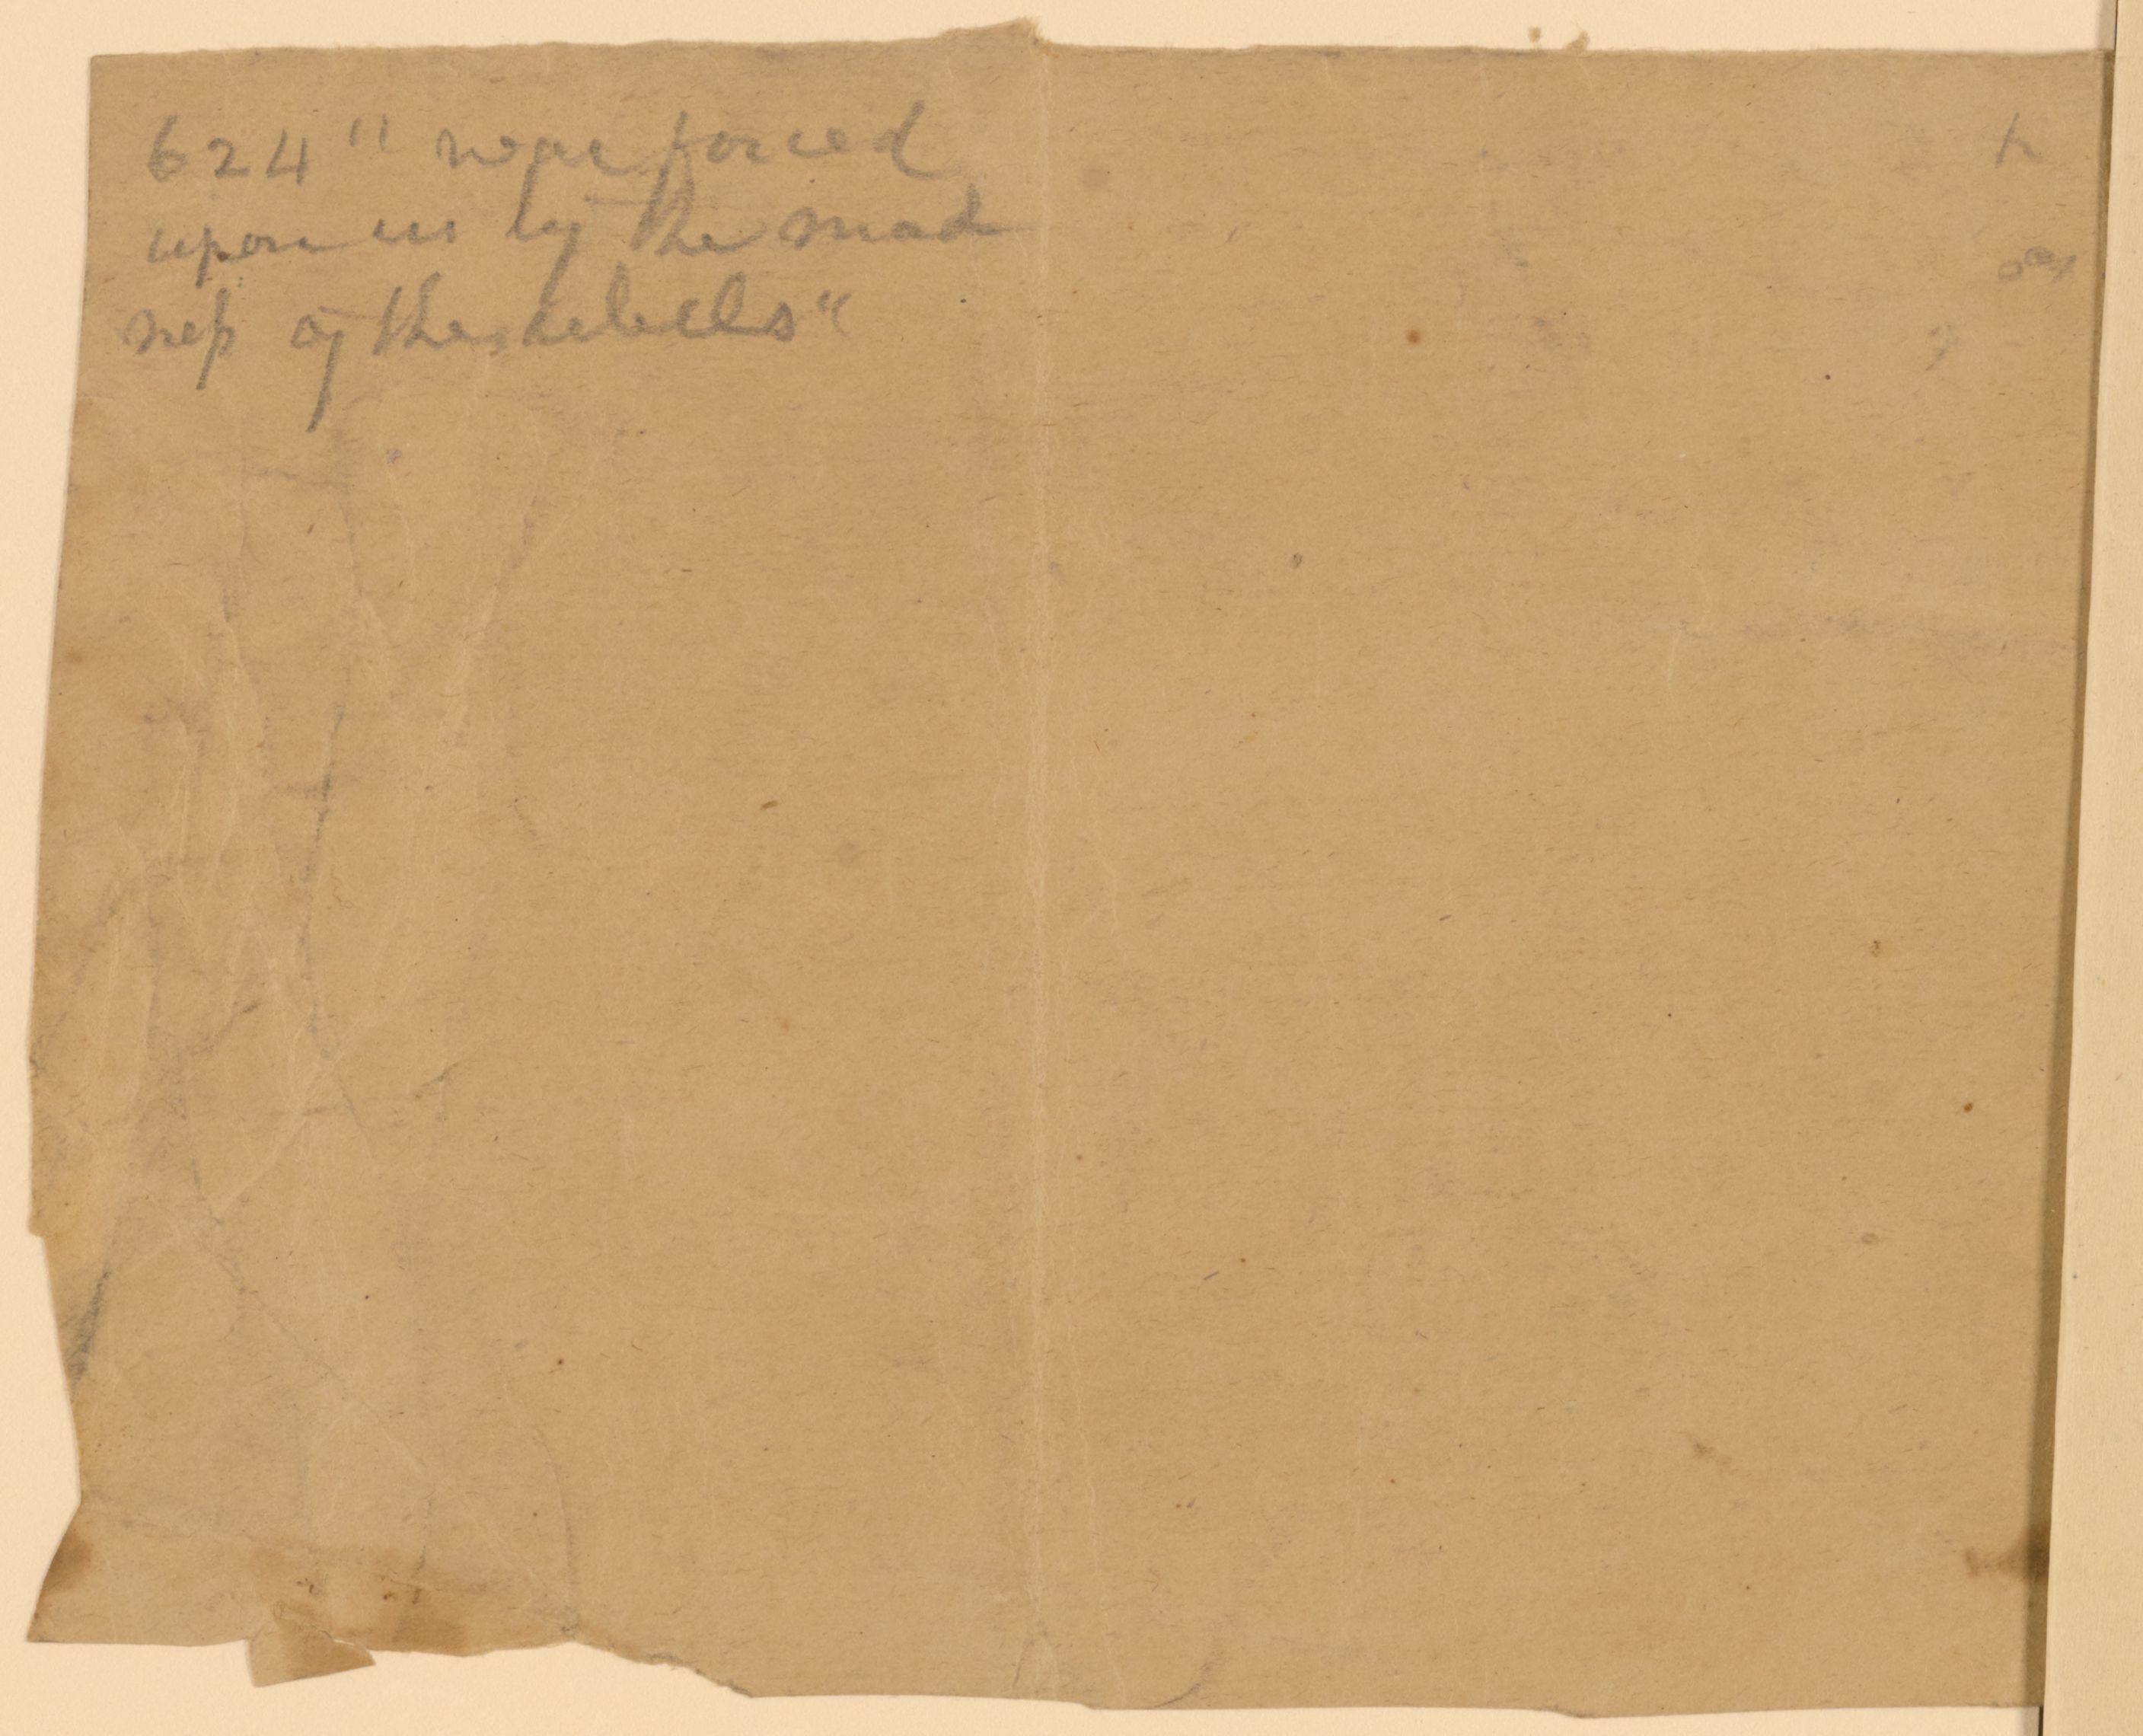 624 " war forced
upon us by the mad
ness of the rebells "